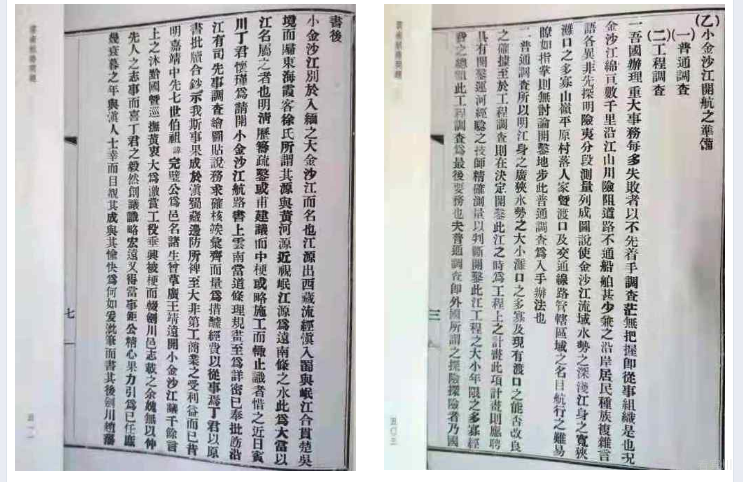 (乙)小金沙江開航之準備
(一)普通調查
(二)工程調查
一吾國辦理重大事務每多失敗者以不先着手調查茫無把握卽從事組織是也况
金沙江綿亘數千里沿江山川險阻道路不通船舶甚少兼之沿岸居民種族複雜言
語各異非先探明險夷分段測量列成圖說使金沙江流域水勢之深淺江身之寬狹
灘口之多寡山嶺平原村落人家曁渡口及交通線路管轄區域之名目航行之難易
瞭如指掌則無討論開鑿地步此普通調查爲入手辦法也
二普通調查所以明江身之廣狹水勢之大小灘口之多寡及現有渡口之能否改良
之確據至於工程調查則在決定開鑿此江之時爲工程上之計畫此項計畫則應聘
具有開鑿運河經驗之技師精確測量以判斷開鑿此江工程之大小年限之多寡經
費之總額此工程調查爲最後要務也夫普通調查卽外國所謂之探險探險者乃國
三
書後
小金沙江別於入緬之大金沙江而名也江源出西藏流經滇入蜀與岷江合貫楚吳
境而歸東海霞客徐氏所謂其源與黃河源近視岷江源爲遠南條之水此爲大富以
江名屬之者也明清歷議疏鑿或甫建議而中梗或略施工而輒止識者惜之近日賓
川丁君懷瑾爲請開小金沙江航路書上雲南當道條理規畫至爲詳密已奉批飭沿
江有司先事調查繪圖貼說務求確核竢彙齊而量爲措醵經費以從事焉丁君以原
書批牘合鈔示我斯事果成於滇蜀藏邊防所裨至大非第工商業之受利益而已昔
明嘉靖中先七世伯祖諱完璧公爲邑名諸生曾草廣王靖遠開小金沙江議千餘言
上之沐黔國曁巡撫黃衷大爲激賞工役垂興被梗而燬劍川邑志載之余媿無以仲
先人之志事而喜丁君之毅然創議識略宏遠又得當事鉅公精心果力引爲已任龐
幾衰暮之年與滇人士幸而目覩其成與其愉快爲何如爰泚筆而書其後劍川趙藩
七